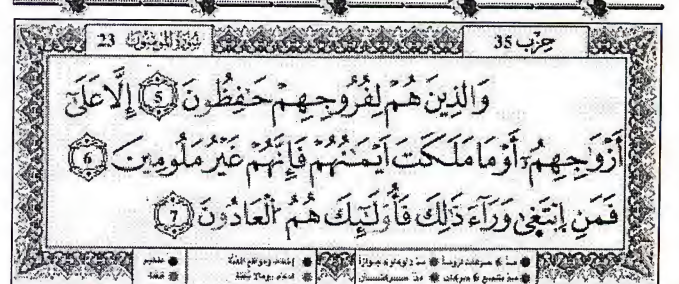 حزب 35
سورة المؤمنون 23
وَالذِينَ هُمْ لِفُرُوجِهِمْ حَٰفِظُونَ 5 إِلَّا عَلَىٰٓ
أَزْوَٰجِهِمُۥٓ أَوْ مَا مَلَكَتَ اَيْمَٰنُهُمْ فَإِنَّهُمْ غَيْرُ مَلُومِينَ 6
فَمَنِ اِبْتَغ۪ىٰ وَرَآءَ ذَٰلِكَ فَأُوْلَٰٓئِكَ هُمُ اُلْعَادُونَ 7